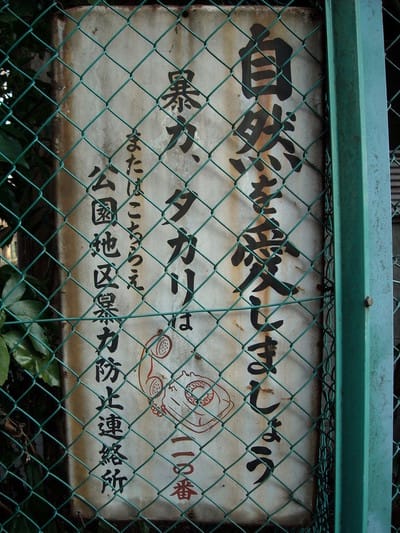 自然を愛しましょう
暴力、タカリは
一一〇番
またはこちらえ
公園地区暴力防止連絡所